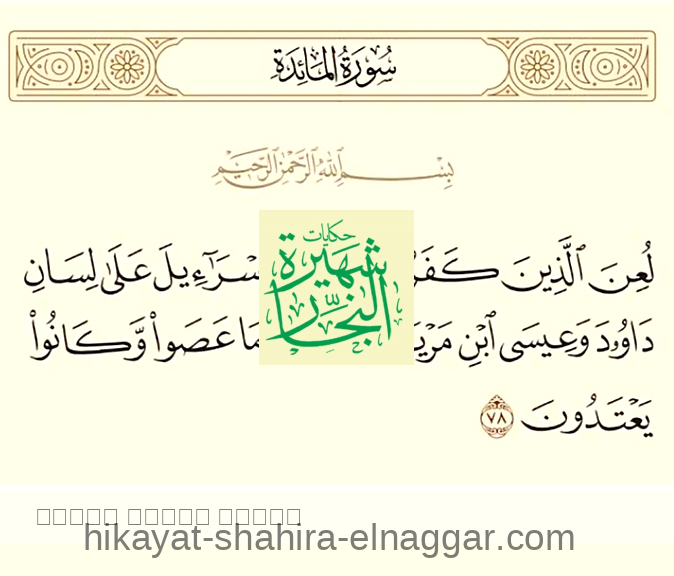 سُورَةُ المَائِدَةِ
بِسْمِ ٱللَّهِ ٱلرَّحْمَٰنِ ٱلرَّحِيمِ
حكايات
شهيرة
النجار
لُعِنَ ٱلَّذِينَ كَفَرُ سْرَٰٓءِيلَ عَلَىٰ لِسَانِ
دَاوُۥدَ وَعِيسَى ٱبْنِ مَرْيَ مَا عَصَوا۟ وَّكَانُوا۟
يَعْتَدُونَ ٧٨
hikayat-shahira-elnaggar.com